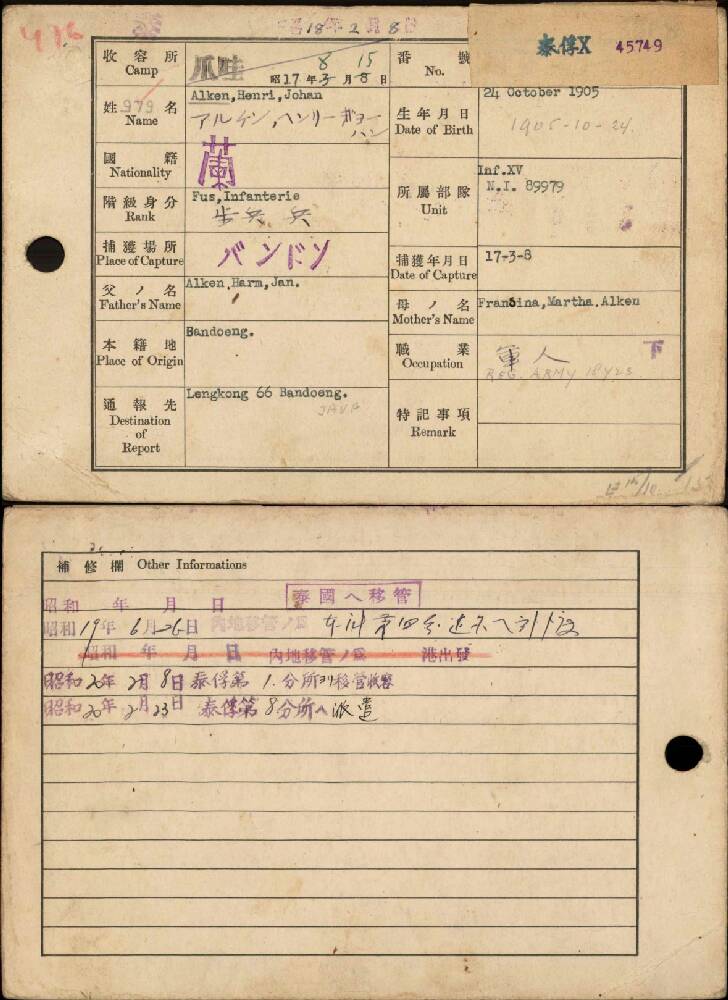 416
昭和18年2月8日
泰俘X 45749
收容所 Camp 爪哇 昭17年3月8日 8 15
番號 No.
姓名 Name 979 Alken,Henri,Johan
アルケン,ヘンリーヨーハン
生年月日 Date of Birth 24 October 1905
1905-10-24.
國籍 Nationality 蘭
階級身分 Rank Fus,Infanterie
步兵 兵
所屬部隊 Unit Inf.XV
N.I. 89979
捕獲場所 Place of Capture バンドン
捕獲年月日 Date of Capture 17-3-8
父ノ名 Father's Name Alken,Harm,Jan.
母ノ名 Mother's Name Fransina,Martha.Alken
本籍地 Place of Origin Bandoeng.
職業 Occupation 軍人 下
REG. ARMY 18 YRS
通報先 Destination of Report Lengkong 66 Bandoeng.
JAVA
特記事項 Remark
補修欄 Other Informations
泰國へ移管
昭和 年 月 日
昭和19年6月26日 內地移管ノ爲
昭和 年 月 日 內地移管ノ爲 港出發
昭和20年2月8日泰俘第1.分所ヨリ移管收容
昭和20年2月23日 泰俘第8分所へ派遣